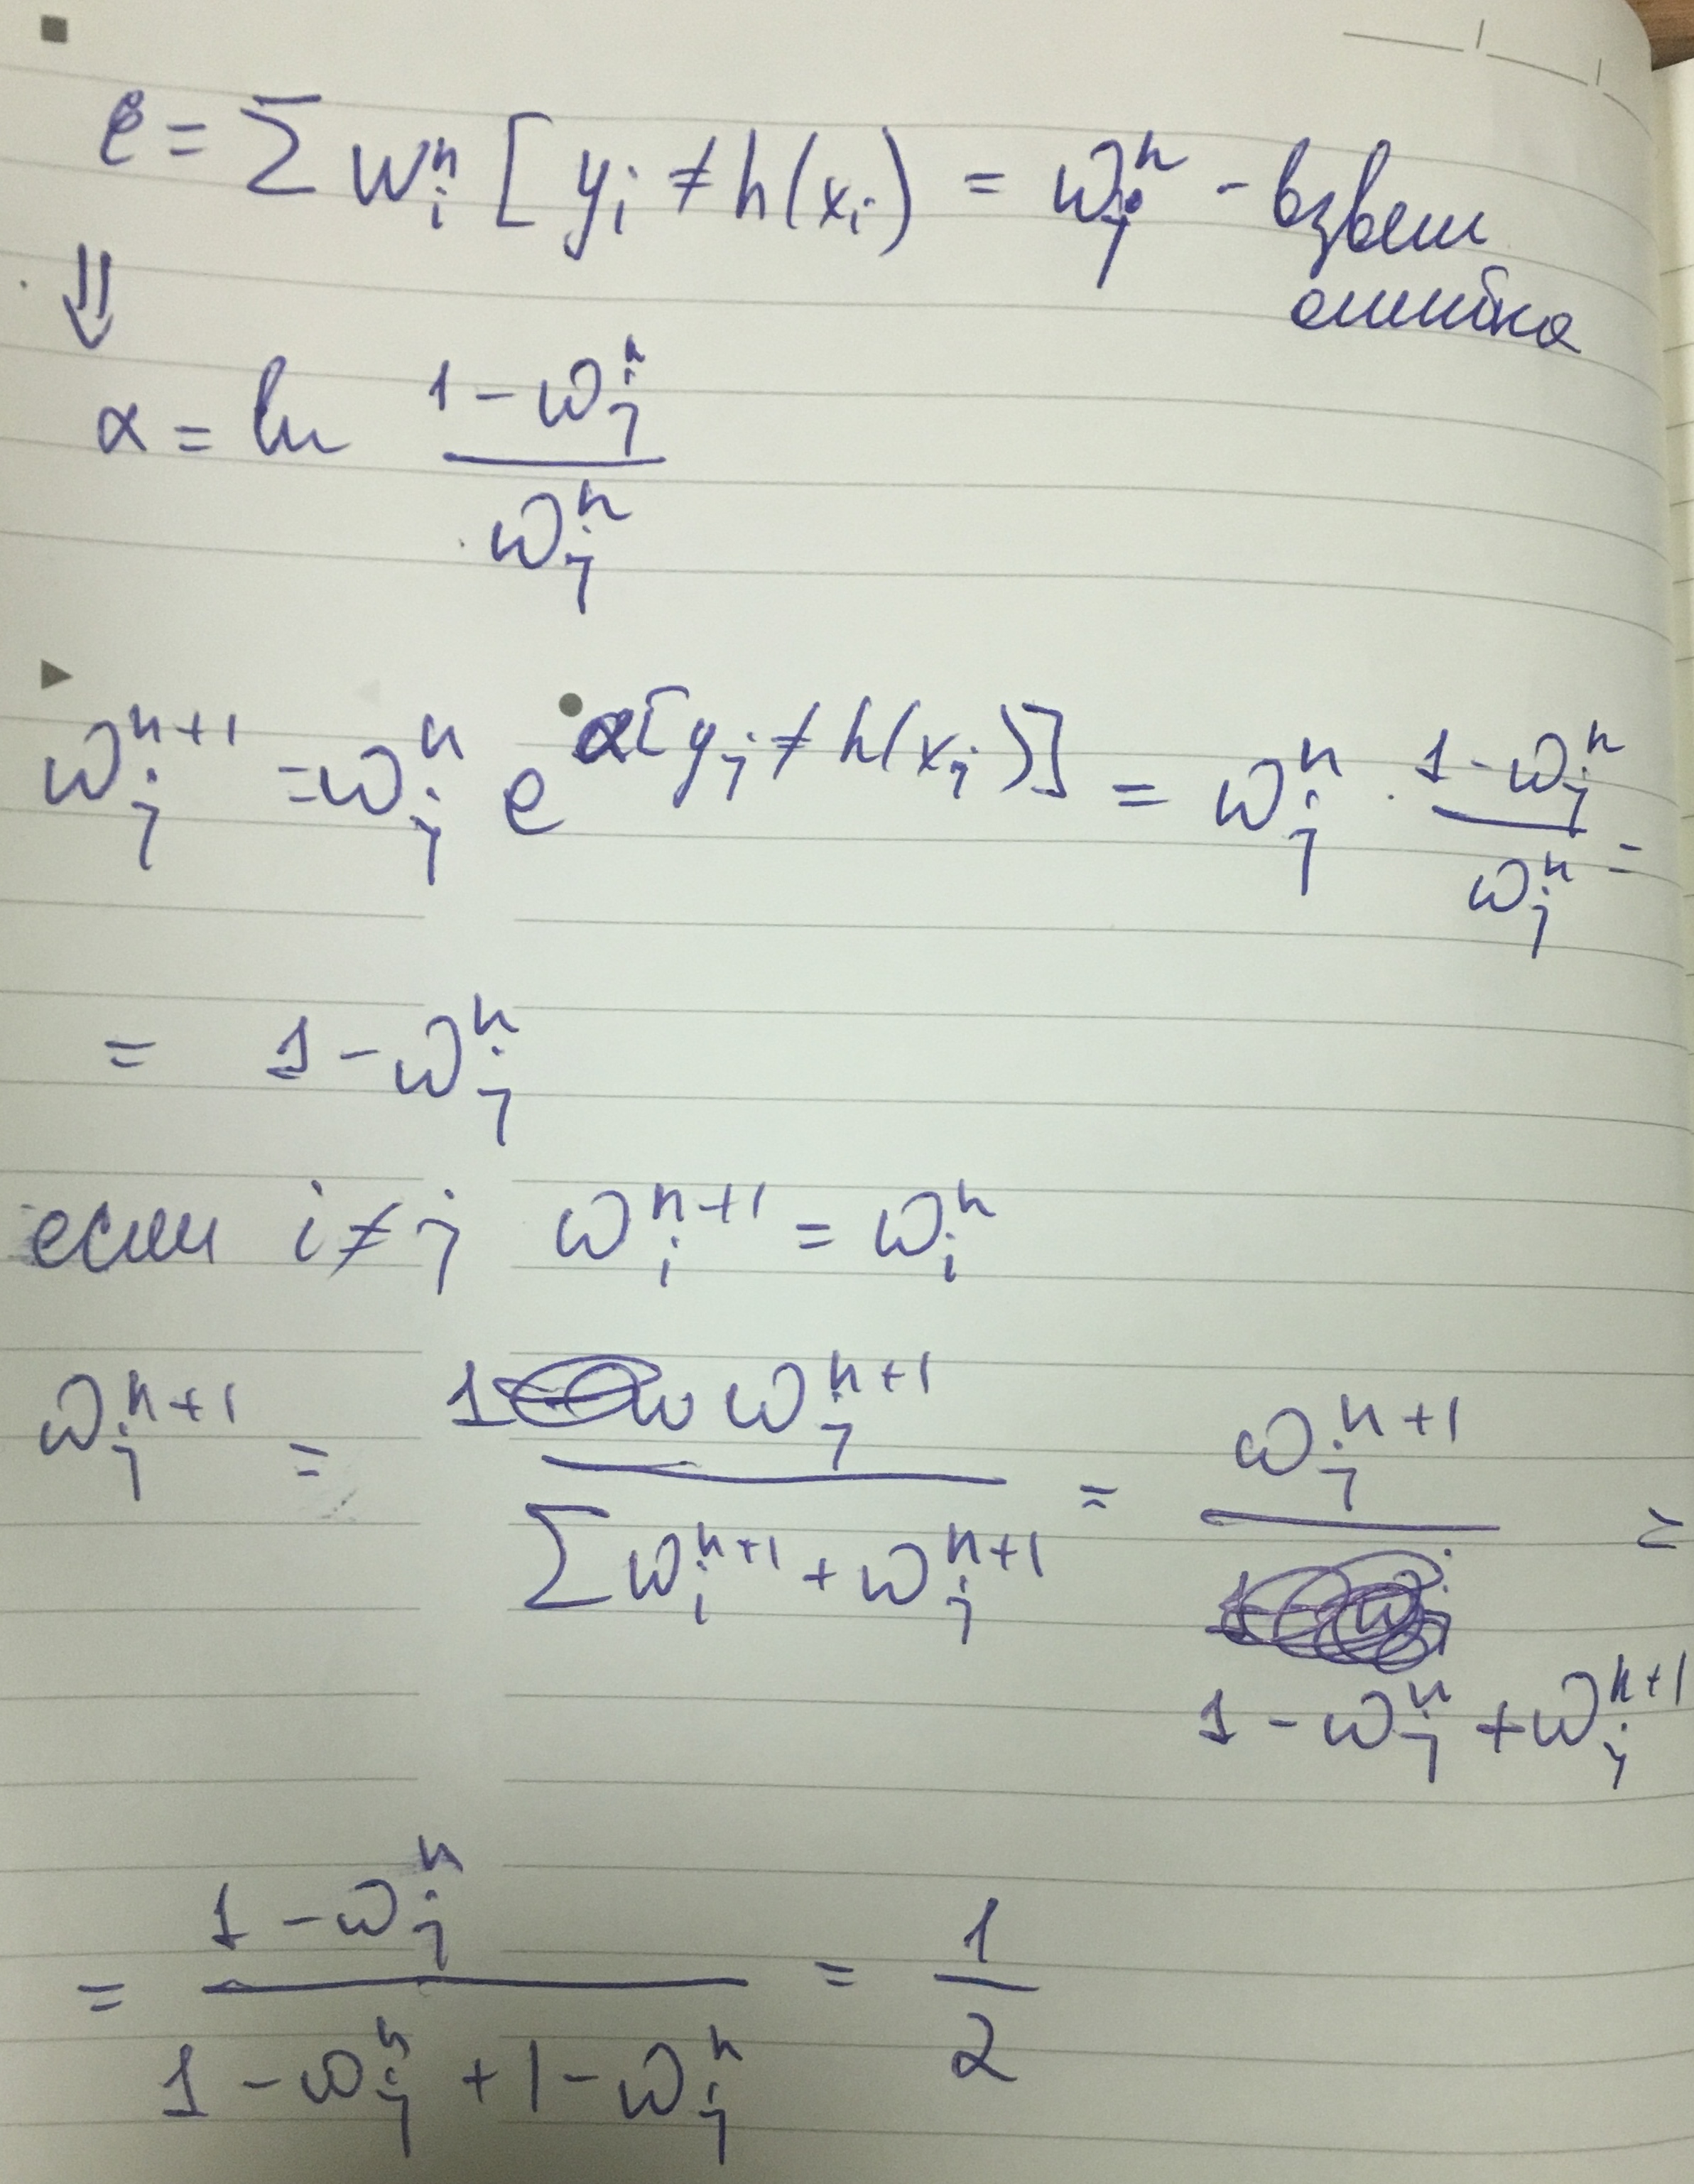 e = Σ w_i^n [ y_i ≠ h(x_i) = w_j^n - взвеш
ошибка
⇓
α = ln (1 - w_j^n) / (w_j^n)
w_j^{n+1} = w_j^n e^{α[y_j ≠ h(x_j)]} = w_j^n · (1 - w_j^n) / (w_j^n) =
= 1 - w_j^n
если i ≠ j w_i^{n+1} = w_i^n
w_j^{n+1} = (w_j^{n+1}) / (Σ w_i^{n+1} + w_j^{n+1}) = (w_j^{n+1}) / (1 - w_j^n + w_j^{n+1}) =
= (1 - w_j^n) / (1 - w_j^n + 1 - w_j^n) = 1 / 2